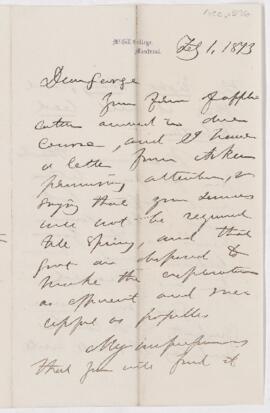 McGill College,
Montreal.
Feb 1, 1873
Dear George
Your form of appli
cation arrived in due
course, and I have
a letter from
promising attention, &
saying that your services
will not be required
till spring, and that
Govt are disposed to
make the exploration
as efficient and suc
as possible
My impression is
that you will find it